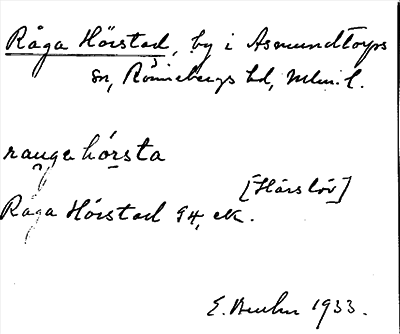 Råga Hörstad, by i Asmundtorps
sn, Rönnebergs hd, Mlm. l.
raugahórsta
[Härslöv]
Råga Hörstad 94, ek.
E. 1933.